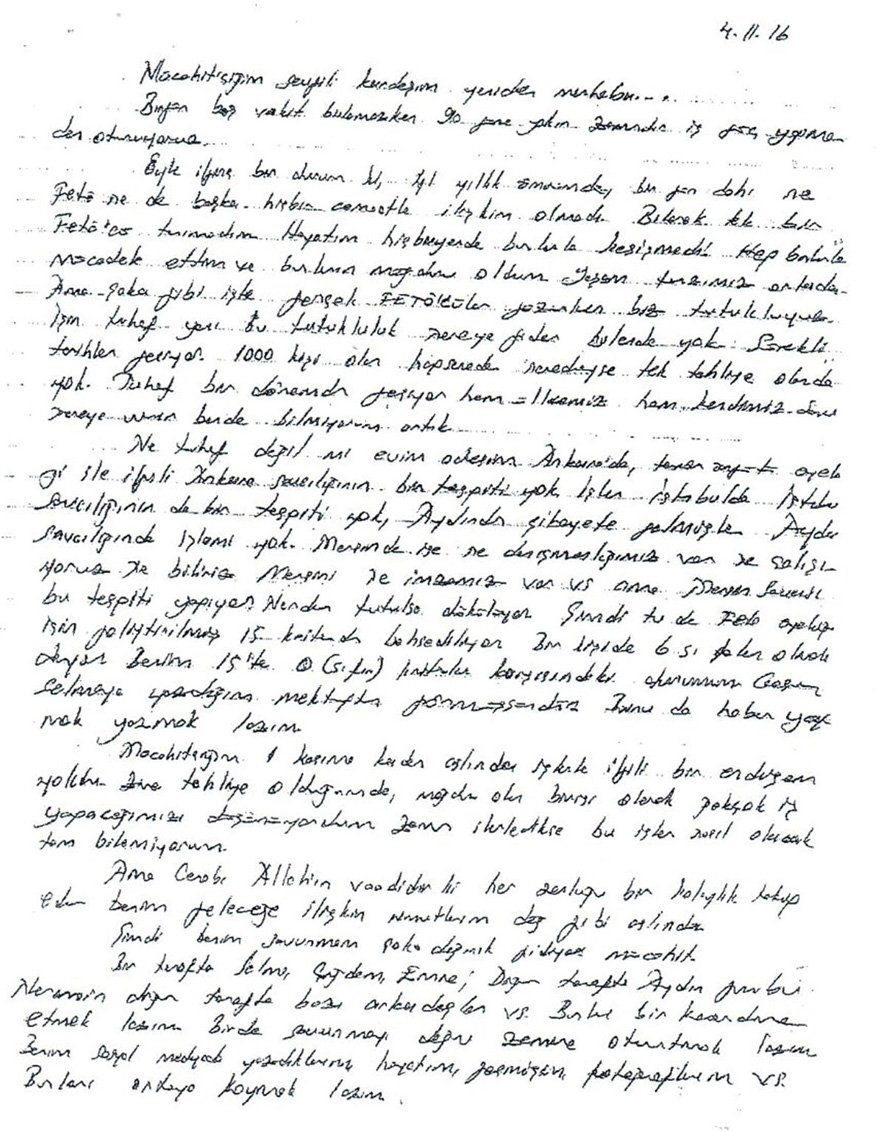 4.11.16
Mücahitçiğim sevgili kardeşim yeniden merhaba....
Birgün boş vakit bulamazken 90 güne yakın zamandır iş güç yapma
dan oturuyoruz.
Öyle ilginç bir durum ki, yıllık ömrümde, bir gün dahi ne
Fetö ne de başka hiçbir cemaatle ilişkim olmadı. Bilerek tek bir
Fetö'cü tanımadım Hayatım hiçbiryerde bunlarla kesişmedi! Hep bunlarla
mücadele ettim ve bunların mağduru oldum Yaşam tarzımız ortada.
Ama şaka gibi işte gerçek FETÖCÜLER gezerken biz tutukluyuz.
İşin tuhaf yanı bu tutukluluk nereye gider bilende yok. Sürekli
tarihler geçiyor. 1000 kişi olan hapisanede neredeyse tek tahliye olanda
yok. Tuhaf bir dönemden geçiyor hem ülkemiz hem kendimiz. Sonu
nereye varır bende bilmiyorum artık.
Ne tuhaf değil mi evim adresim Ankara'da, üyeli
ği ile ilgili Ankara savcılığının bir tespiti yok, işler İstanbulda İstanbul
savcılığının da bir tespiti yok, Aydından şikayete gelmişler Aydın
savcılığında işlemi yok. Mersinde ise ne danışmanlığımız var ne çalışı-
yoruz ne biliriz Mersini ne imzamız var vs ama Mersin Savcısı
bu tespiti yapıyor! Nerden tutulsa dökülüyor Şimdi tv de Feto üyeliği
için geliştirilmiş 15 kriterden bahsediliyor Bir kişide 6 sı falan olacak
diyor Benim 15'te 0 (sıfır) kriterler karşısındaki durumum
Selma'ya yazdığım mektupta görmüşsündür Bunu da haber yap
mak yazmak lazım.
Mücahitciğim 1 kasıma kadar aslında işlerle ilgili bir endişem
yoktu. tahliye olduğumda, mağdur olan birisi olarak pekçok iş
yapacağımızı düşünüyordum zaman ilerledikçe bu işler nasıl olacak
tam bilemiyorum.
Ama Cenabı Allahın vaadidir ki her zorluğu bir kolaylık takip
eder benim geleceğe ilişkin ümitlerim dağ gibi aslında
Şimdi benim savunmam çoka dağınık gidiyor mücahit.
Bir tarafta Selma, Çiğdem, Emine; Diğer tarafta Aydın grubu
diğer tarafta bazı arkadaşlar vs. Bunları bir koordine
etmek lazım Birde savunmayı doğru zemine oturtmak lazım
Benim sosyal medyada yazdıklarım, hayatım, geçmişim, fotoğraflarım vs
Bunları ortaya koymak lazım.